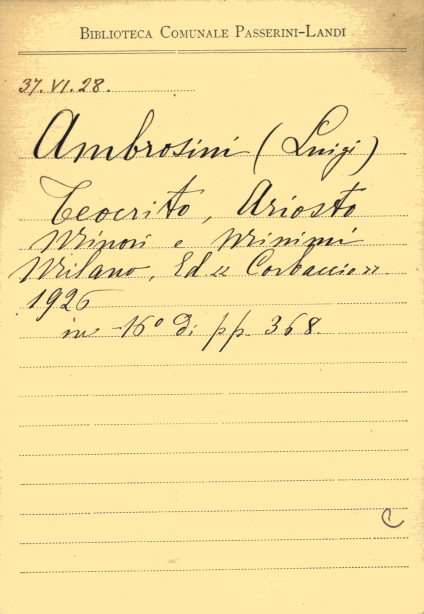 BIBLIOTECA COMUNALE PASSERINI-LANDI
37.VI.28.
Ambrosini (Luigi)
Teocrito, Ariosto
Minori e Minimi
Milano, Ed « Corbaccio »
1926
in-16° di pp. 368.
C